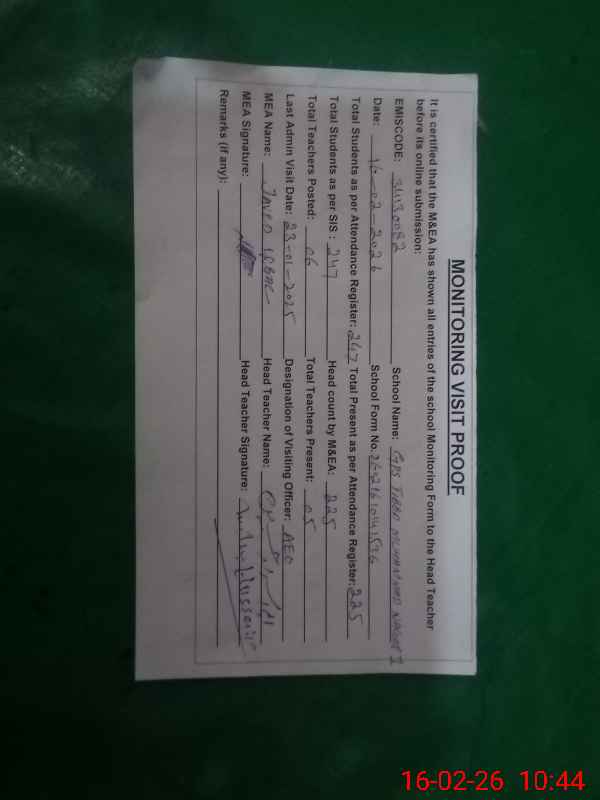 MONITORING VISIT PROOF
It is certified that the M&EA has shown all entries of the school Monitoring Form to the Head Teacher
before its online submission:
EMISCODE: 31130082 School Name: GPS MUHAMMAD I
Date: 16-02-2026 School Form No.
Total Students as per Attendance Register: 247 Total Present as per Attendance Register: 225
Total Students as per SIS : 247 Head count by M&EA: 225
Total Teachers Posted: 06 Total Teachers Present: 05
Last Admin Visit Date: 23-01-2025 Designation of Visiting Officer: AEO
MEA Name: JAVED IQBAL Head Teacher Name:
MEA Signature: Head Teacher Signature:
Remarks (if any):
16-02-26 10:44